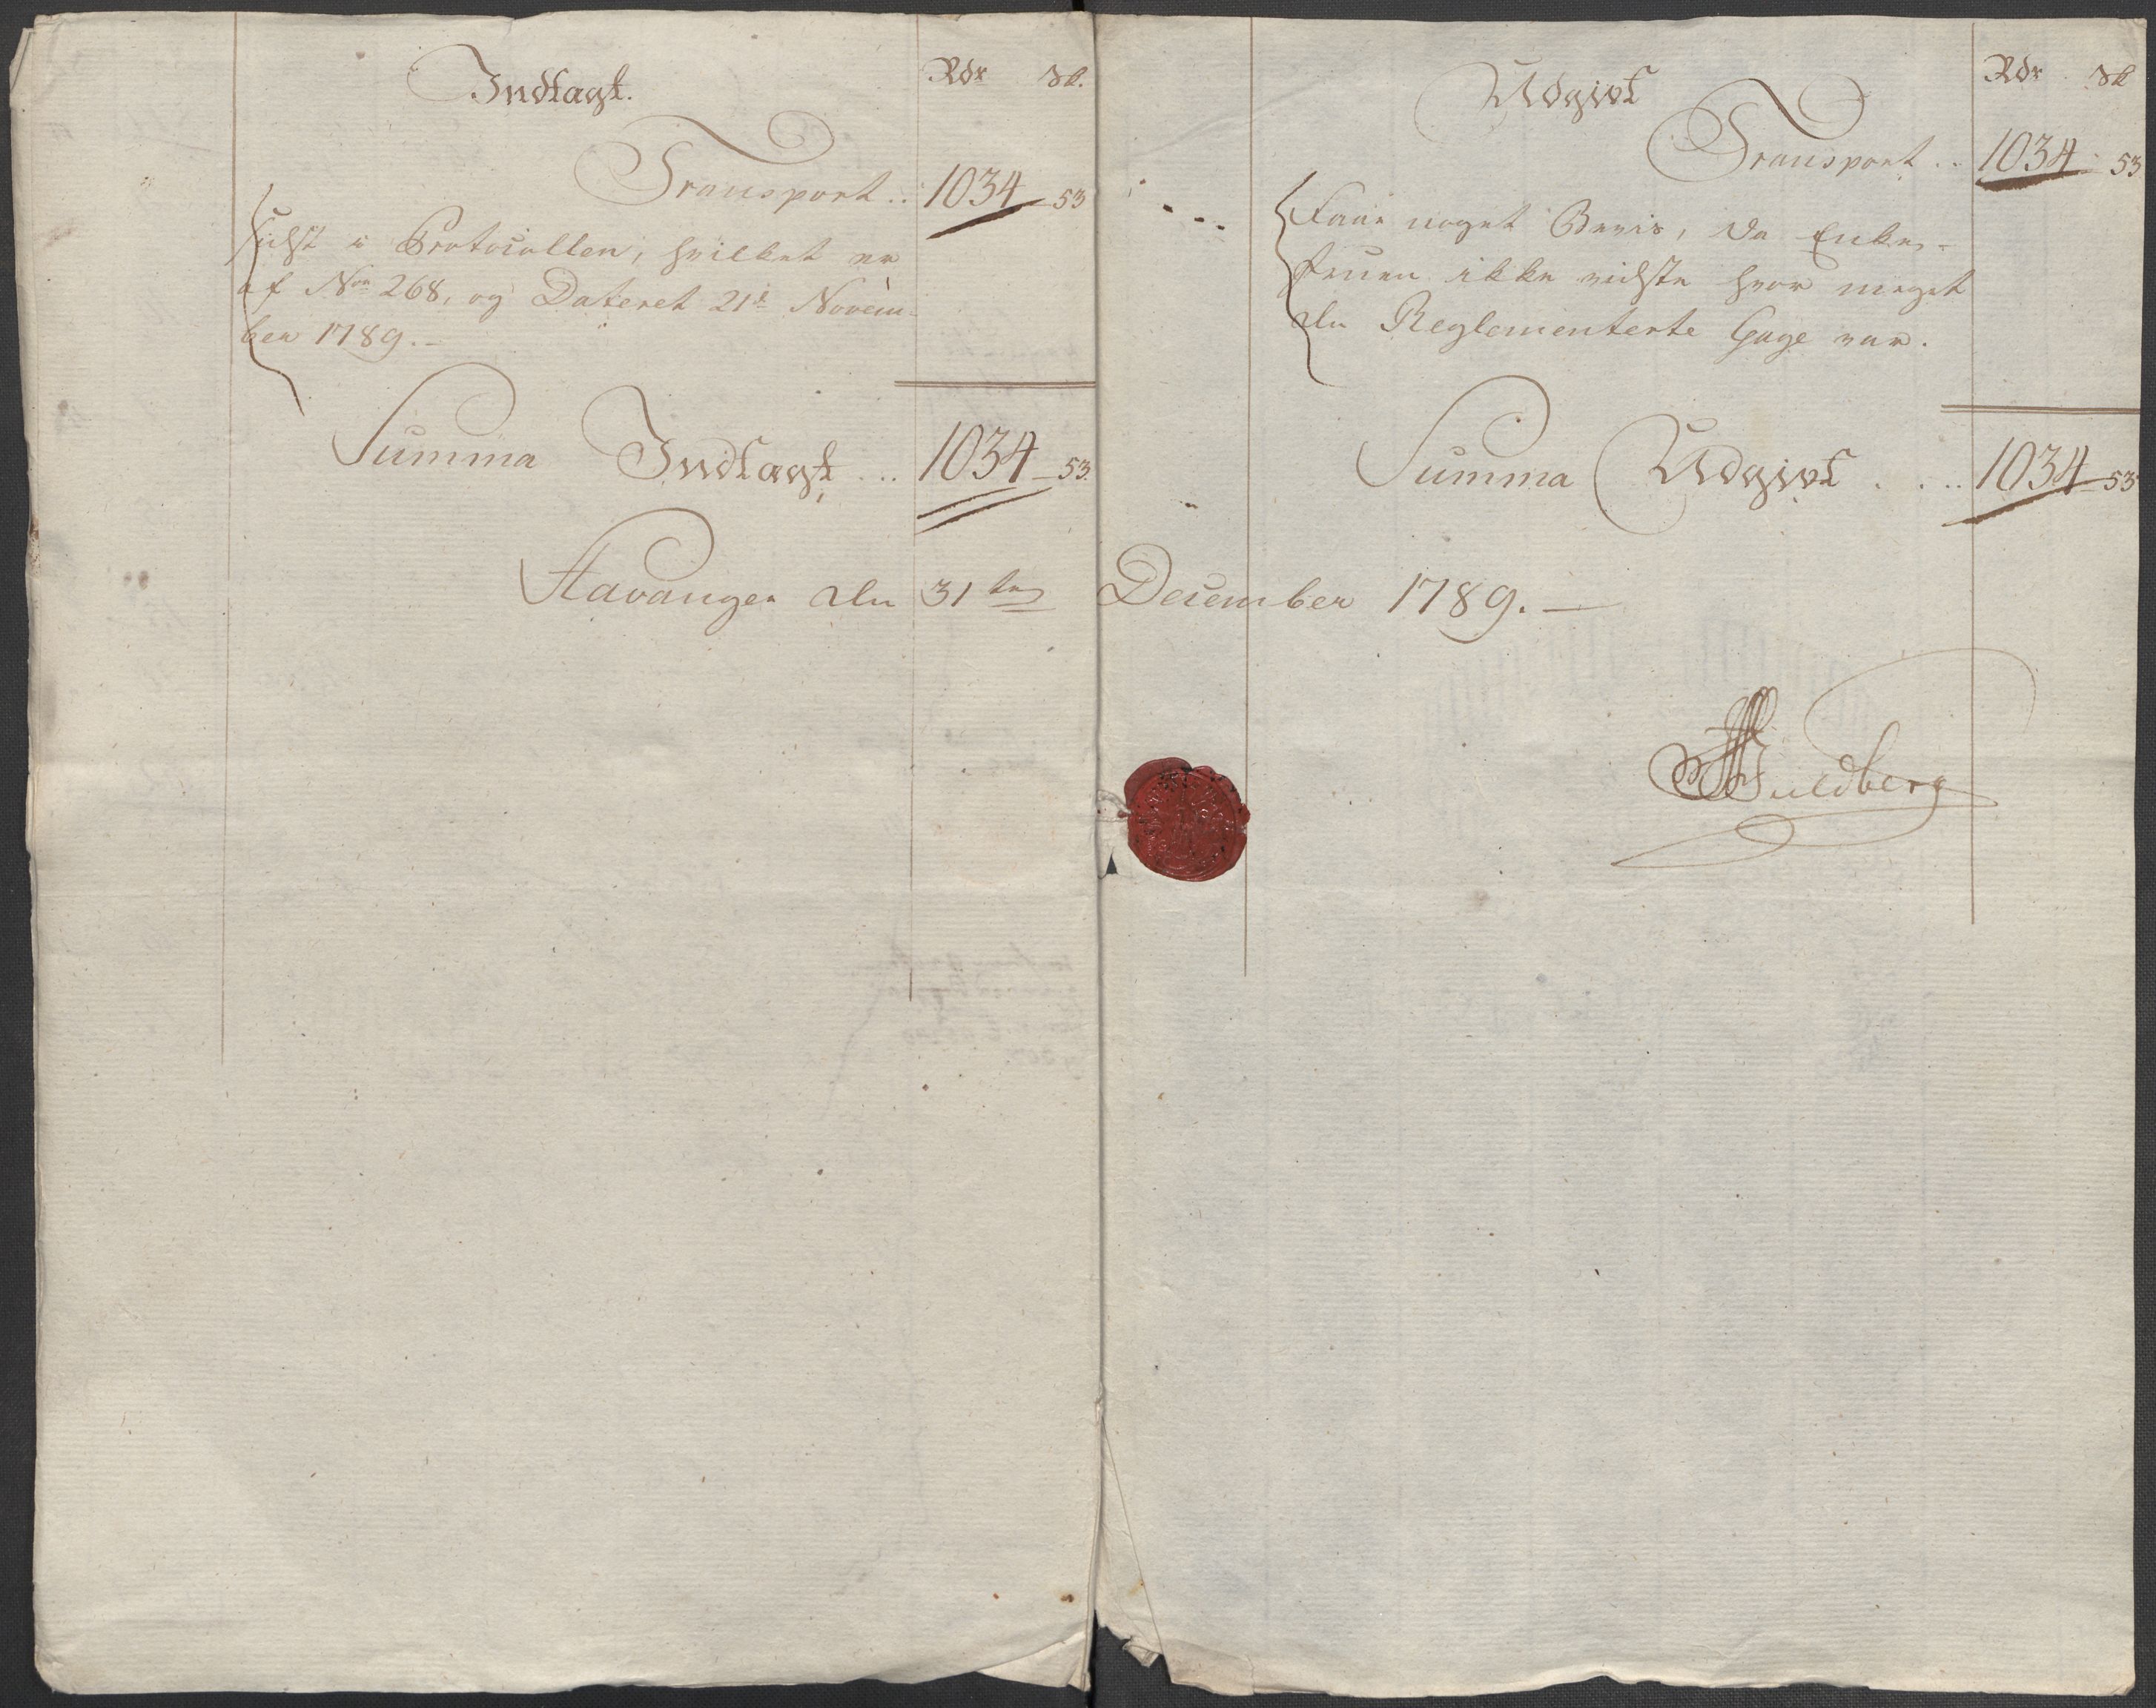 Indtægt.
Rdr Sk.
Transport .. 1034 - 53
sidst i Protocollen, hvilket er
af Nro 268, og Dateret 21de Novem-
ber 1789. -
Summa Indtægt ... 1034 - 53.
Udgivt
Rdr Sk
Transport .. 1034 - 53
Faae noget Beviis, da Enke-
Fruen ikke vidste hvor meget
den Reglementerte Gage var.
Summa Udgivt . . .. 1034 - 53
Stavanger den 31ten December 1789. —
Guldberg